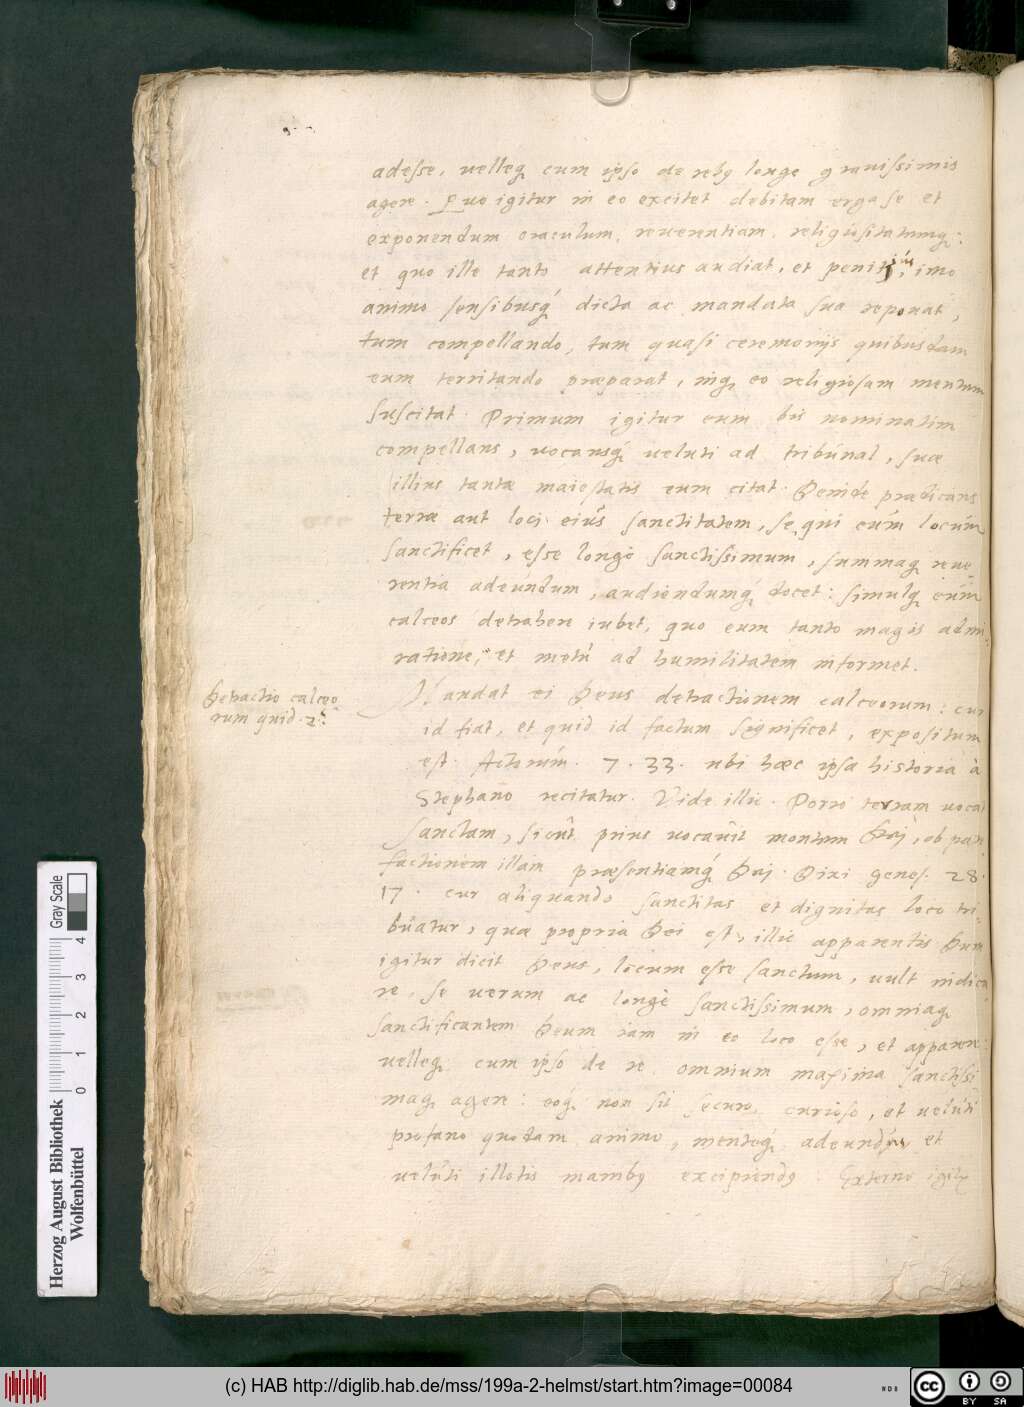 adesse, uelleq; cum ipso de rebꝰ longe grauissimis
agere. Quo igitur in eo excitet debitam erga se et
exponendum oraculum, reuerentiam, religiositatemq;:
et quo ille tanto attentius audiat, et penitius, imo
animo sensibusq; dicta ac mandata sua reponat,
tum compellando, tum quasi ceremonijs quibusdam
eum territando præparat, inq; eo religiosam mentem
suscitat. Primum igitur eum bis nominatim
compellans, uocansq; ueluti ad tribunal, suæ
illius tantæ maiestatis eum citat. Deinde prædicans
terræ aut loci eius sanctitatem, se, qui eum locum
sanctificet, esse longè sanctissimum, summaq; reue
rentia adeundum, audiendumq; docet: simulq; eum
calceos detrahere iubet, quo eum tanto magis admi
ratione, et metu ad humilitatem informet.
Detractio calceo
rum quid. 2.
Mandat ei Deus detractionem calceorum: cur
id fiat, et quid id factum significet, expositum
est. Actorum. 7. 33. ubi hæc ipsa historia à
Stephano recitatur. Vide illic. Porro terram uocat
sanctam, sicut prius uocauit montem Dei, ob pate
factionem illam præsentiamq; Dei. Dixi genes. 28.
17. cur aliquando sanctitas et dignitas loco tri
buatur, quæ propria Dei est, illic apparentis. Dum
igitur dicit Deus, locum esse sanctum, uult indica
re, se uerum ac longè sanctissimum, omniaq;
sanctificantem Deum iam in eo loco esse, et apparere
uelleq; cum ipso de re omnium maxima sanctissi
maq; agere: eoq; non sit securo, curioso, et ueluti
profano quodam animo, menteq; adeundus et
ueluti illotis manibꝰ excipiendꝰ. Externo igitur
Herzog August Bibliothek
Wolfenbüttel
0 1 2 3 4
Gray Scale
(c) HAB http://diglib.hab.de/mss/199a-2-helmst/start.htm?image=00084
cc BY SA